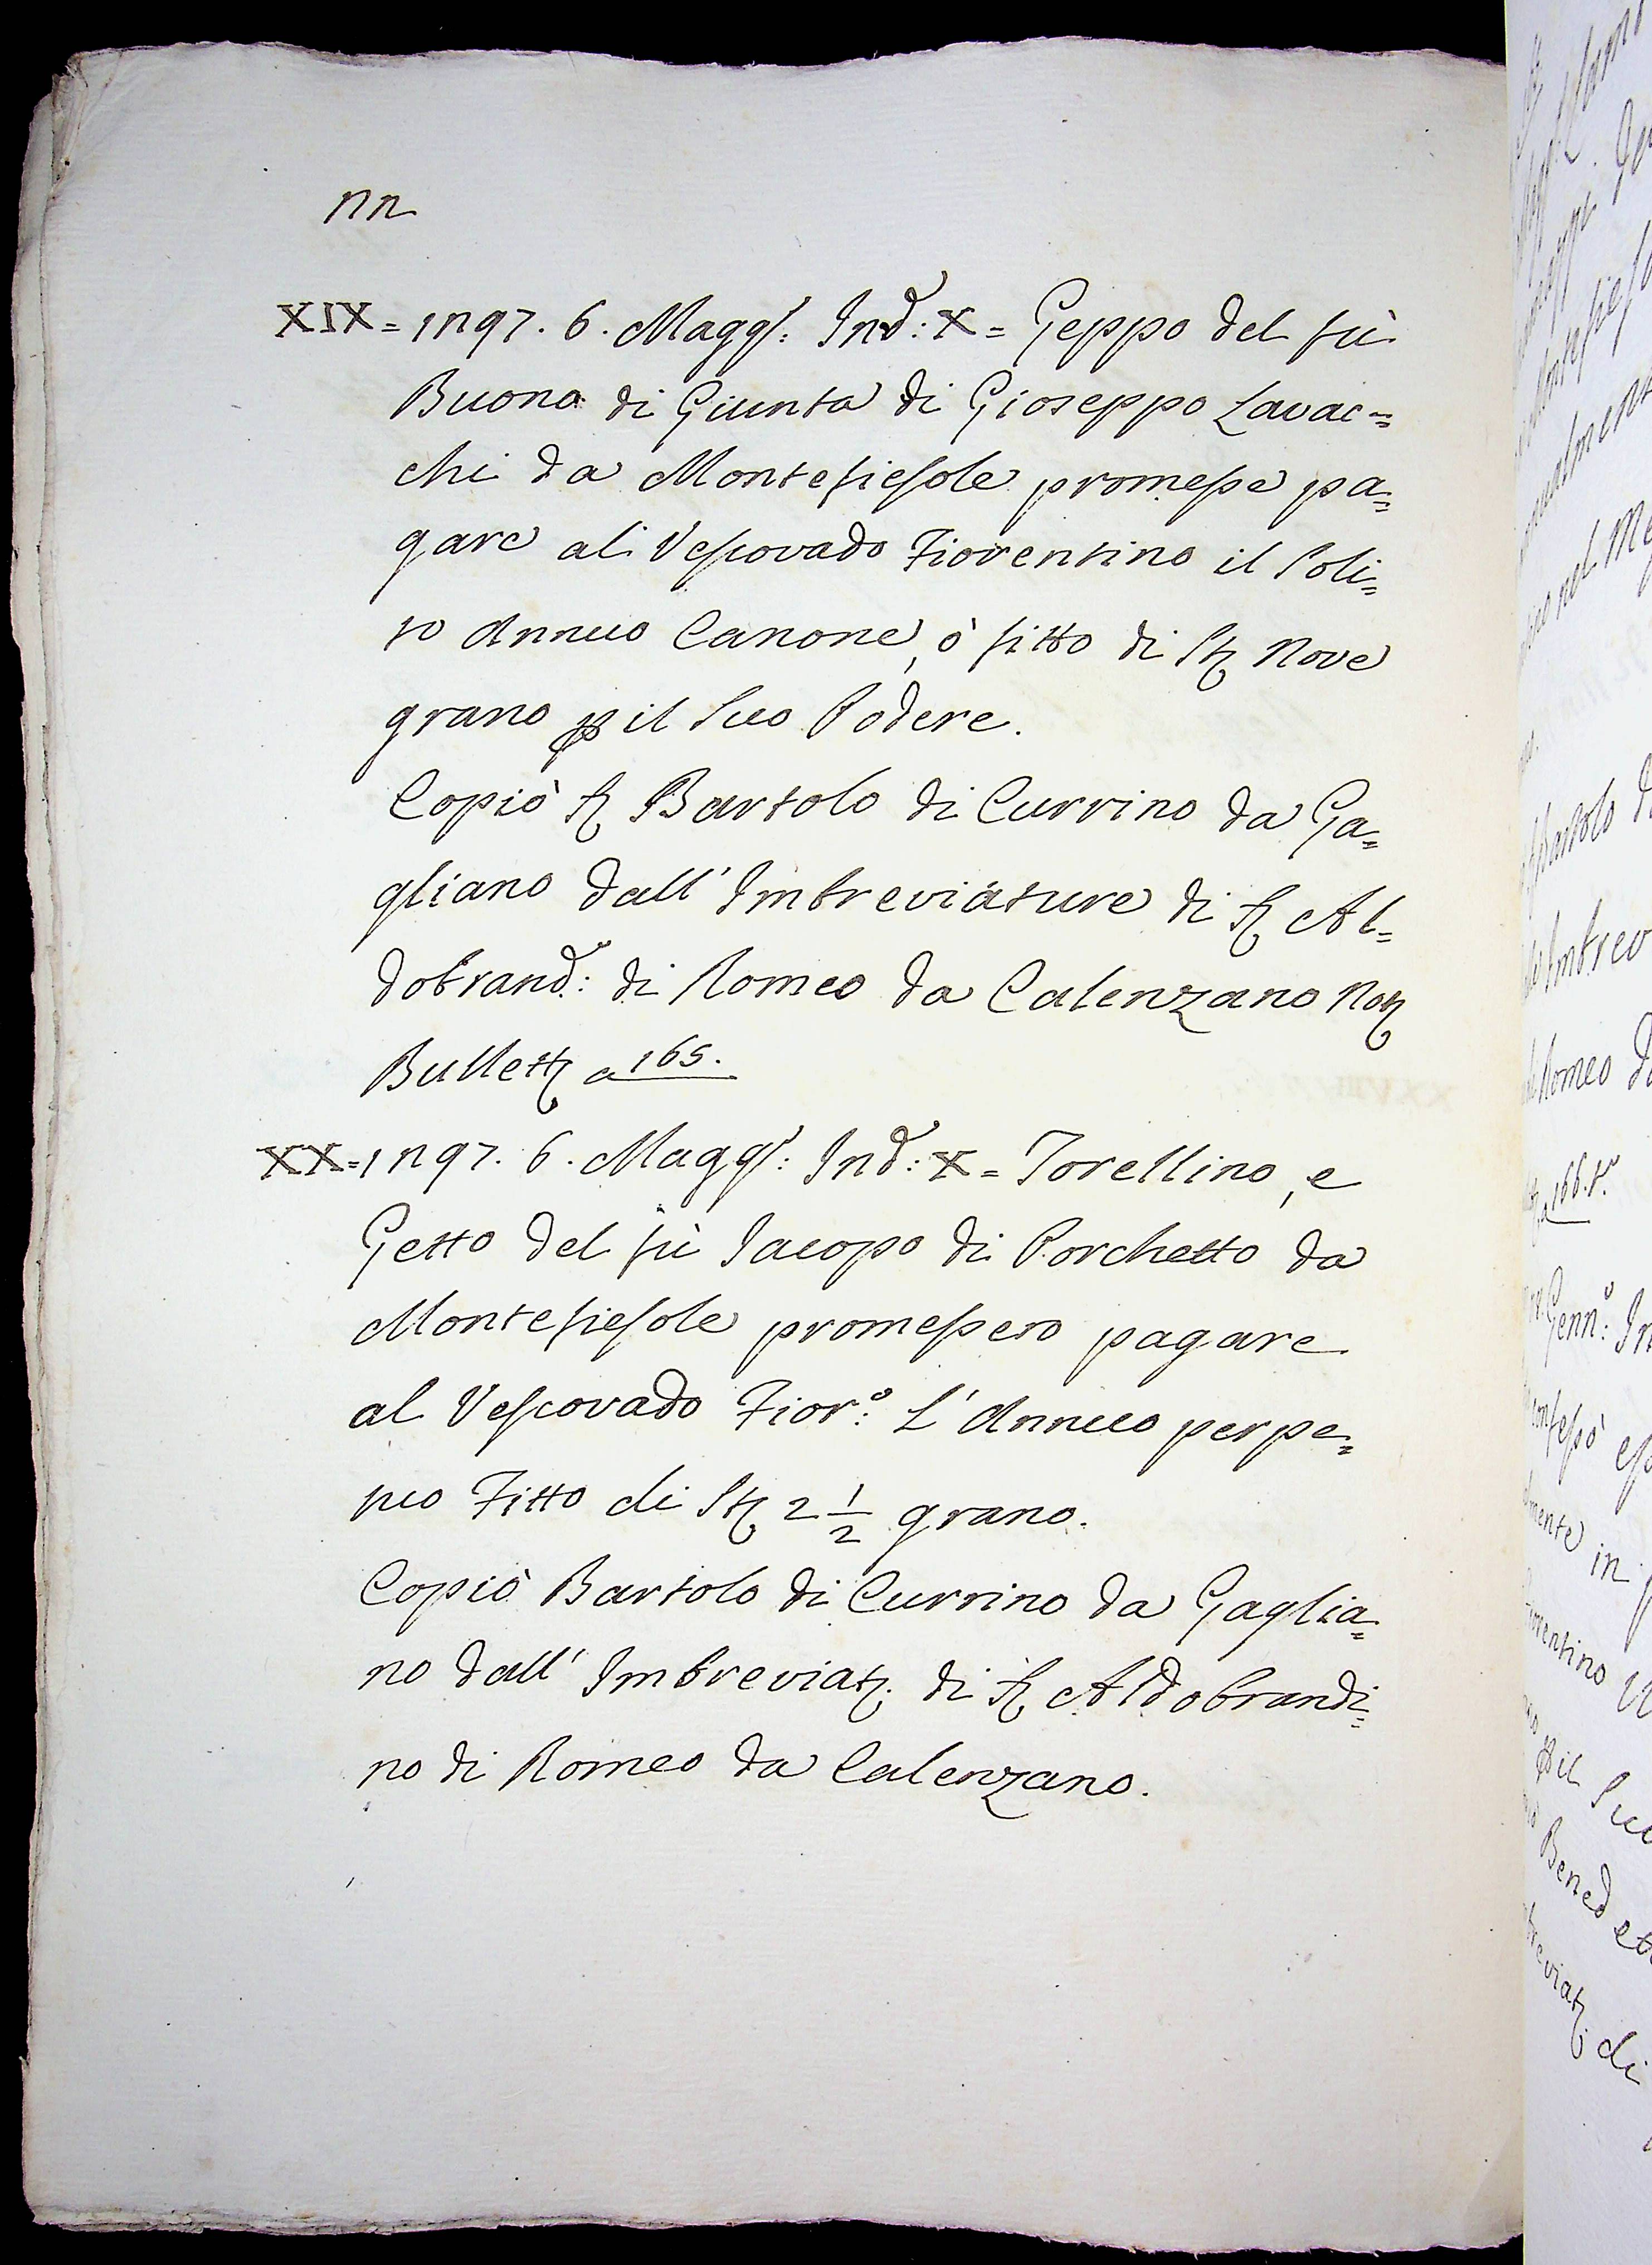 22
XIX = 1297. 6. Magg.: Ind: X = Geppo del fù
Buono di Giunta di Gioseppo Lavac=
chi da Montefiesole promesse pa=
gare al Vescovado Fiorentino il soli=
to Annuo Canone, ò fitto di St Nove
grano p il suo Podere.
Copiò S Bartolo di Currino da Ga=
gliano dall' Imbreviature di S Al=
dobrand: di Romeo da Calenzano Not
Bullett a 165.
XX = 1297. 6. Magg.: Ind: X = Torellino, e
Getto del fù Iacopo di Porchetto da
Montefiesole promessero pagare
al Vescovado Fior.º: L' Annuo perpe=
tuo Fitto di St 2 1/2 grano.
Copiò Bartolo di Currino da Gaglia=
no dall' Imbreviat. di S Aldobrandi=
no di Romeo da Calenzano.